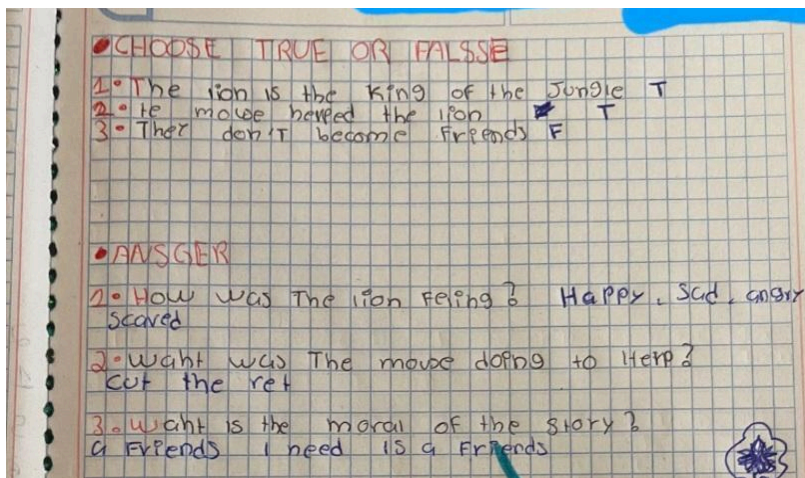 • CHOOSE TRUE OR FALSSE
1• The lion is the King of the Jungle T
2• te mouse herped the lion T
3• Ther don't become friends F
• ANSGER
1• How was The lion Feling? Happy, sad, angry
scaved
2• Waht was The mouse doing to Herp?
cut the ret
3• Waht is the moral of the story?
a Friends I need is a Friends